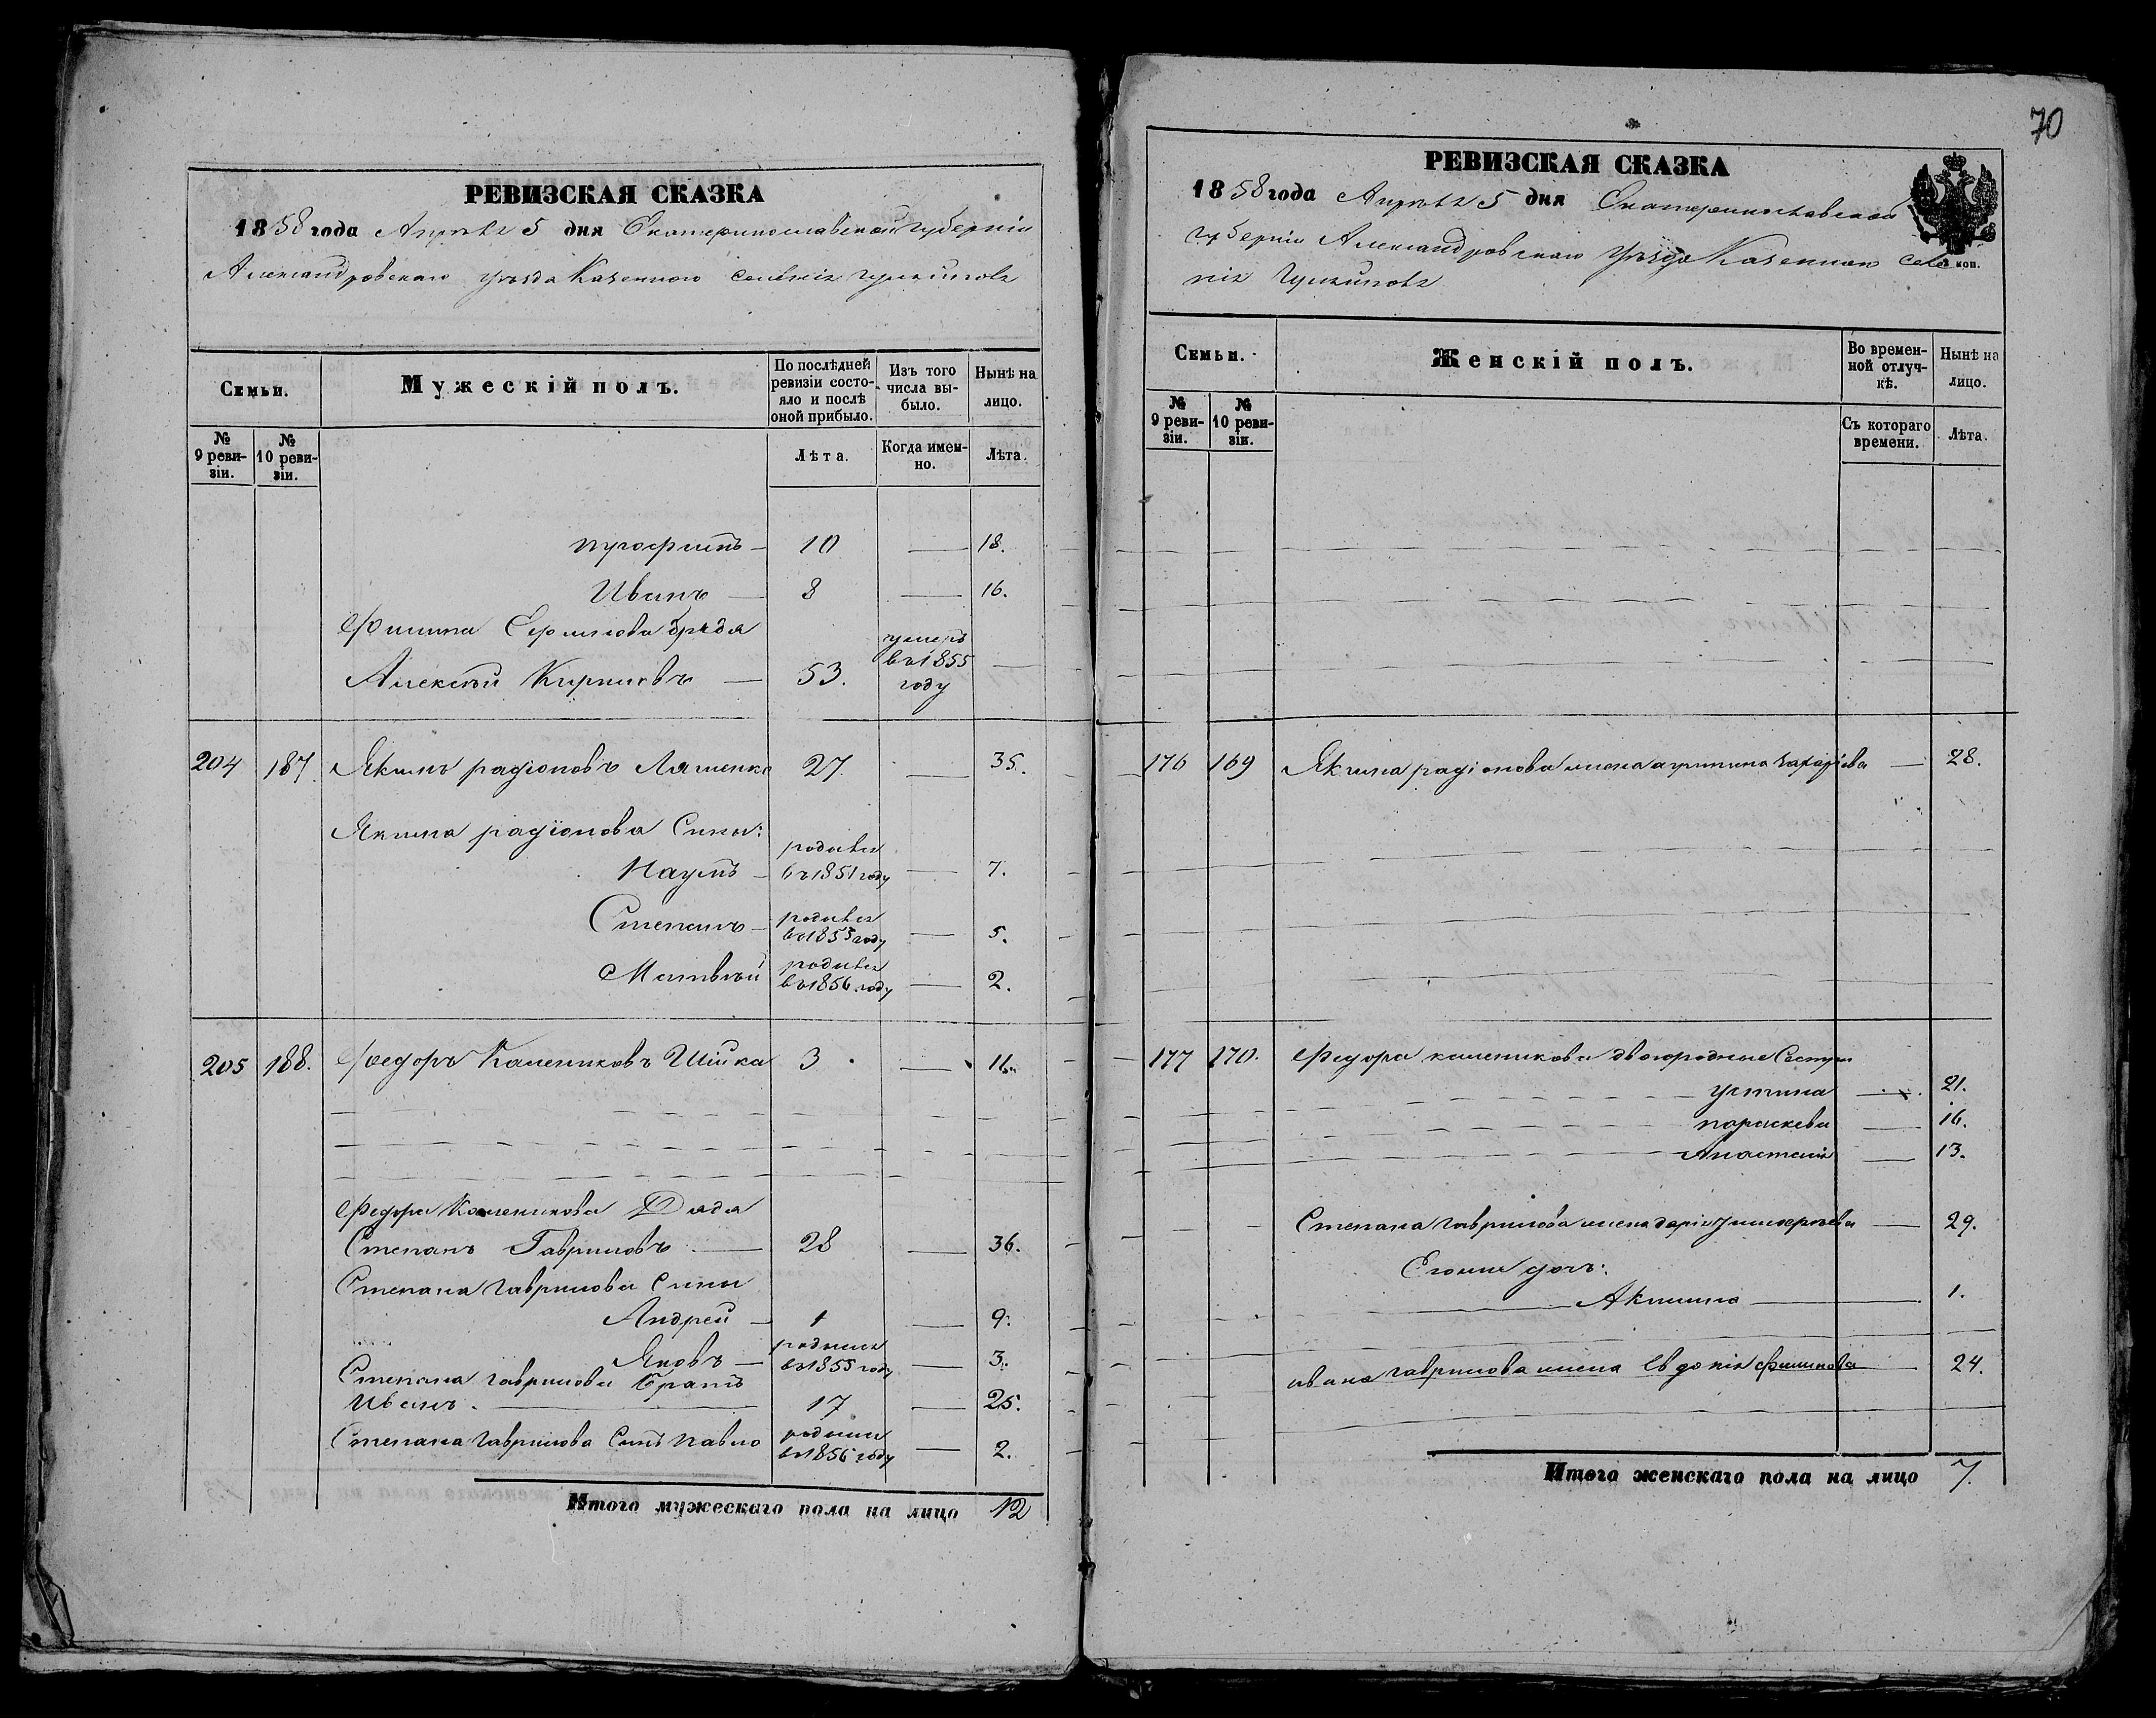 70
РЕВИЗСКАЯ СКАЗКА
1858 года Апрѣля 5 дня Екатеринославской губерніи
Александровскаго уѣзда Казенного селенія
Семьи.
Мужескій полъ.
По послѣдней ревизіи состояло и послѣ оной прибыло.
Изъ того числа выбыло.
Нынѣ на лицо.
№ 9 ревизіи.
№ 10 ревизіи.
Лѣта.
Когда именно.
Лѣта.
10 — 18.
Иванъ — 8 — 16.
дядя умеръ
Алексѣй — 53. въ 1855 году —
204 187 Якимъ радіоновъ Ляшенко 27. — 35.
Якима радіонова Сыны:
Наумъ — родился въ 1851 году — 7.
Степанъ — родился въ 1853 году — 5.
Матвѣй родился въ 1856 году — 2.
205 188. Федоръ Калениковъ Шійка 3 — 11.
Федора Каленикова Дядя
Степанъ Гавриловъ — 28 — 36.
Степана Гаврилова Сыны
Андрей — 1 — 9.
Яковъ — родился въ 1855 году — 3.
Степана гаврилова братъ
Иванъ. — 17 — 25.
Степана Гаврилова Сынъ павло родился въ 1856 году — 2.
Итого мужескаго пола на лицо 12
РЕВИЗСКАЯ СКАЗКА
1858 года Апрѣля 5 дня Екатеринославской
губерніи Александровскаго уѣзда Казенного селе
нія
2 коп.
Семьи.
Женскій полъ.
Во временной отлучкѣ.
Нынѣ на лицо.
№ 9 ревизіи.
№ 10 ревизіи.
Съ котораго времени.
Лѣта.
176 169 Якима радіонова жена агрипина захаріева — 28.
177 170. Федора каленикова двоюродные Сестры
устина — 21.
параскева — 16.
Анастасія — 13.
Степана гаврилова жена дарія — 29.
дочь:
Акилина — 1.
ивана гаврилова жена Евдокія филипова — 24.
Итого женскаго пола на лицо 7.